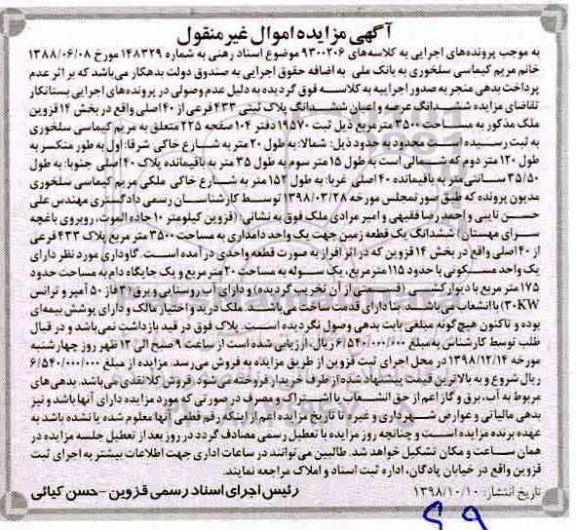 آگهی مزایده اموال غیر منقول
به موجب پرونده‌های اجرایی به کلاسه‌های ۹۳۰۰۲۰۶ موضوع اسناد رهنی به شماره ۱۴۸۳۲۹ مورخ ۱۳۸۸/۰۶/۰۸
خانم مریم کیماسی سلخوری به بانک ملی به اضافه حقوق اجرایی به صندوق دولت بدهکار می‌باشد که بر اثر عدم
پرداخت بدهی منجر به صدور اجراییه به کلاسه فوق گردیده به دلیل عدم وصولی در پرونده‌های اجرایی بستانکار
تقاضای مزایده ششدانگ عرصه و اعیان ششدانگ پلاک ثبتی ۴۳۳ فرعی از ۴۰ اصلی واقع در بخش ۱۴ قزوین
ملک مذکور به مساحت ۳۵۰۰ متر مربع ذیل ثبت ۱۹۵۷۰ دفتر ۱۰۴ صفحه ۲۲۵ متعلق به مریم کیماسی سلخوری
به ثبت رسیده است محدود به حدود ذیل: شمالا: به طول ۲۰ متر به شارع خاکی شرقا: اول به طور منکسر به
طول ۱۲۰ متر دوم که شمالی است به طول ۱۵ متر سوم به طول ۳۵ متر به باقیمانده پلاک ۴۰ اصلی جنوبا: به طول
۳۵/۵۰ سانتی‌متر به باقیمانده ۴۰ اصلی غربا: به طول ۱۵۲ متر به شارع خاکی ملکی مریم کیماسی سلخوری
مدیون پرونده که طبق صورتمجلس مورخه ۱۳۹۸/۰۳/۲۸ توسط کارشناسان رسمی دادگستری مهندس علی
حسن نایبی و احمدرضا فقیهی و امیر مرادی ملک فوق به نشانی: (قزوین کیلومتر ۱۰ جاده الموت، روبروی باغچه
سرای مهستان) ششدانگ یک قطعه زمین جهت یک واحد دامداری به مساحت ۳۵۰۰ متر مربع پلاک ۴۳۳ فرعی
از ۴۰ اصلی واقع در بخش ۱۴ قزوین که در اثر افراز به صورت قطعه واحدی در آمده است. گاوداری مورد نظر دارای
یک واحد مسکونی با حدود ۱۱۵ متر مربع، یک سوله به مساحت ۲۰ متر مربع و یک جایگاه دام به مساحت حدود
۱۷۵ متر مربع با دیوارکشی (قسمتی از آن تخریب گردیده) و دارای آب روستایی و برق (۳ فاز ۵۰ آمپر و ترانس
۳۰KW) با انشعاب می‌باشد. بنا دارای قدمت ساخت می‌باشد. ملک در ید و اختیار مالک و دارای پوشش بیمه‌ای
بوده و تاکنون هیچ‌گونه مبلغی بابت بدهی وصول نگردیده است. پلاک فوق در قید بازداشت نمی‌باشد و در قبال
طلب توسط کارشناس به مبلغ ۶/۵۴۰/۰۰۰/۰۰۰ ریال، ارزیابی شده است از ساعت ۹ صبح الی ۱۲ ظهر روز چهارشنبه
مورخه ۱۳۹۸/۱۲/۱۴ در محل اجرای ثبت قزوین از طریق مزایده به فروش می‌رسد. مزایده از مبلغ ۶/۵۴۰/۰۰۰/۰۰۰
ریال شروع و به بالاترین قیمت پیشنهاد شده از طرف خریدار فروخته می‌شود. فروش کلا نقدی می‌باشد. بدهی های
مربوط به آب، برق و گاز اعم از حق انشعاب یا اشتراک و مصرف در صورتی که مورد مزایده دارای آنها باشد و نیز
بدهی مالیاتی و عوارض شهرداری و غیره تا تاریخ مزایده اعم از اینکه رقم قطعی آنها معلوم شده یا نشده باشد به
عهده برنده مزایده است و چنانچه روز مزایده با تعطیل رسمی مصادف گردد در روز بعد از تعطیل جلسه مزایده در
همان ساعت و مکان تشکیل خواهد شد. طالبین می‌توانند در ساعات اداری جهت اطلاعات بیشتر به اجرای ثبت
قزوین واقع در خیابان پادگان، اداره ثبت اسناد و املاک مراجعه نمایند.
تاریخ انتشار: ۱۳۹۸/۱۰/۱۰ رئیس اجرای اسناد رسمی قزوین - حسن کیائی